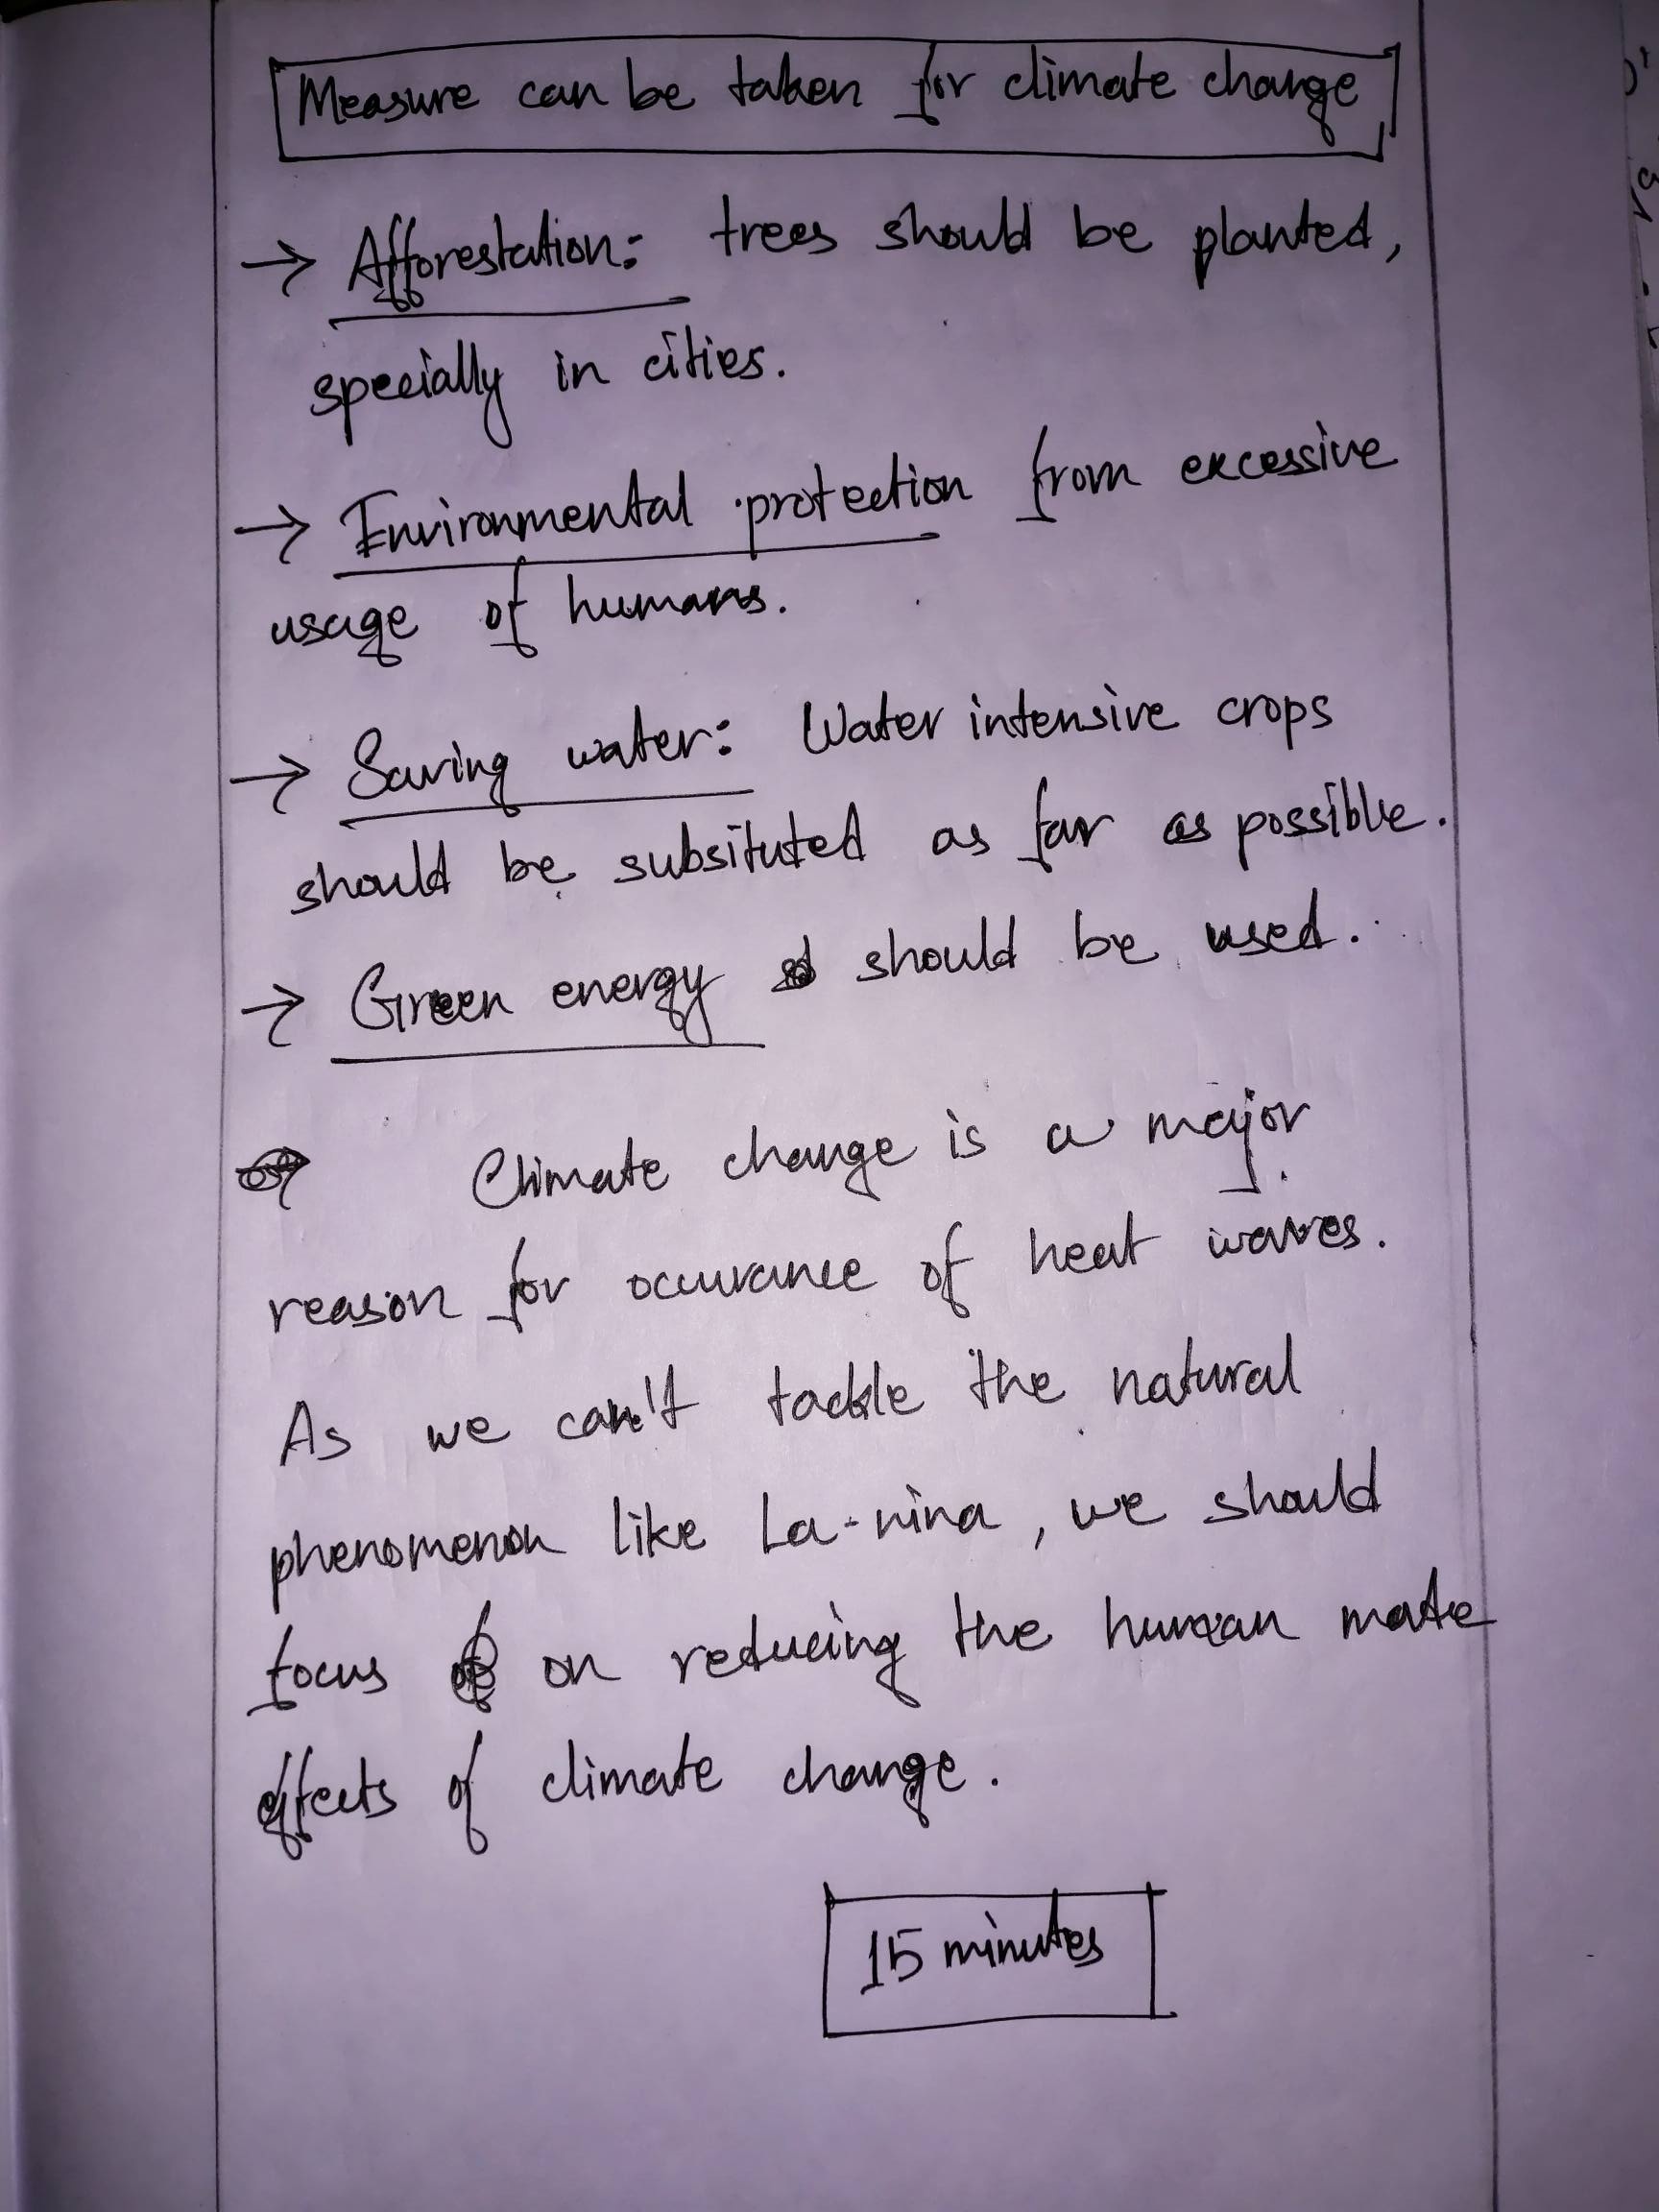 Measure can be taken for climate change
→ Afforestation: trees should be planted,
specially in cities.
→ Environmental protection from excessive
usage of humans.
→ Saving water: Water intensive crops
should be subsituted as far as possible.
→ Green energy should be used.
Climate change is a major
reason for occurance of heat waves.
As we can't tackle the natural
phenomenon like La-nina, we should
focus on reducing the human made
effects of climate change.
15 minutes